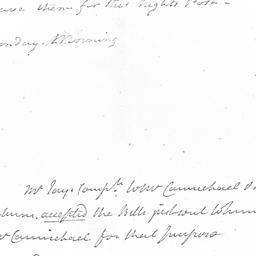 them for this Nights Post -
Monday Morning
Mr Jays Compts to Mr Carmichael
accepted the Bills just sent
Carmichael for that purpose